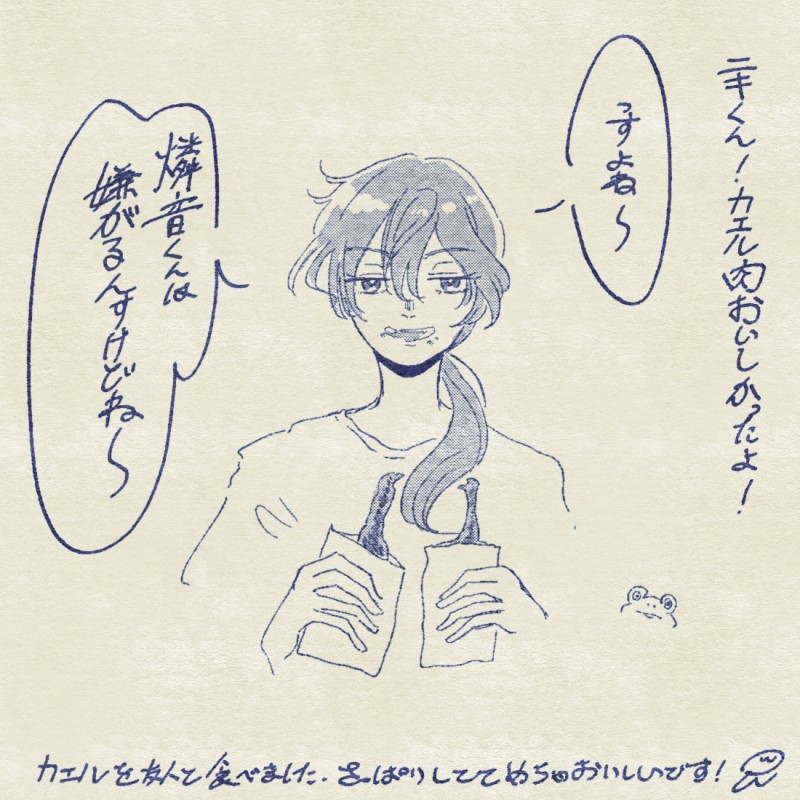 ニキくん！カエル肉おいしかったよ！
っすよね〜
燐音くんは
嫌がるんすけどね〜
カエルを友人と食べました．さっぱりしててめちゃおいしいです！